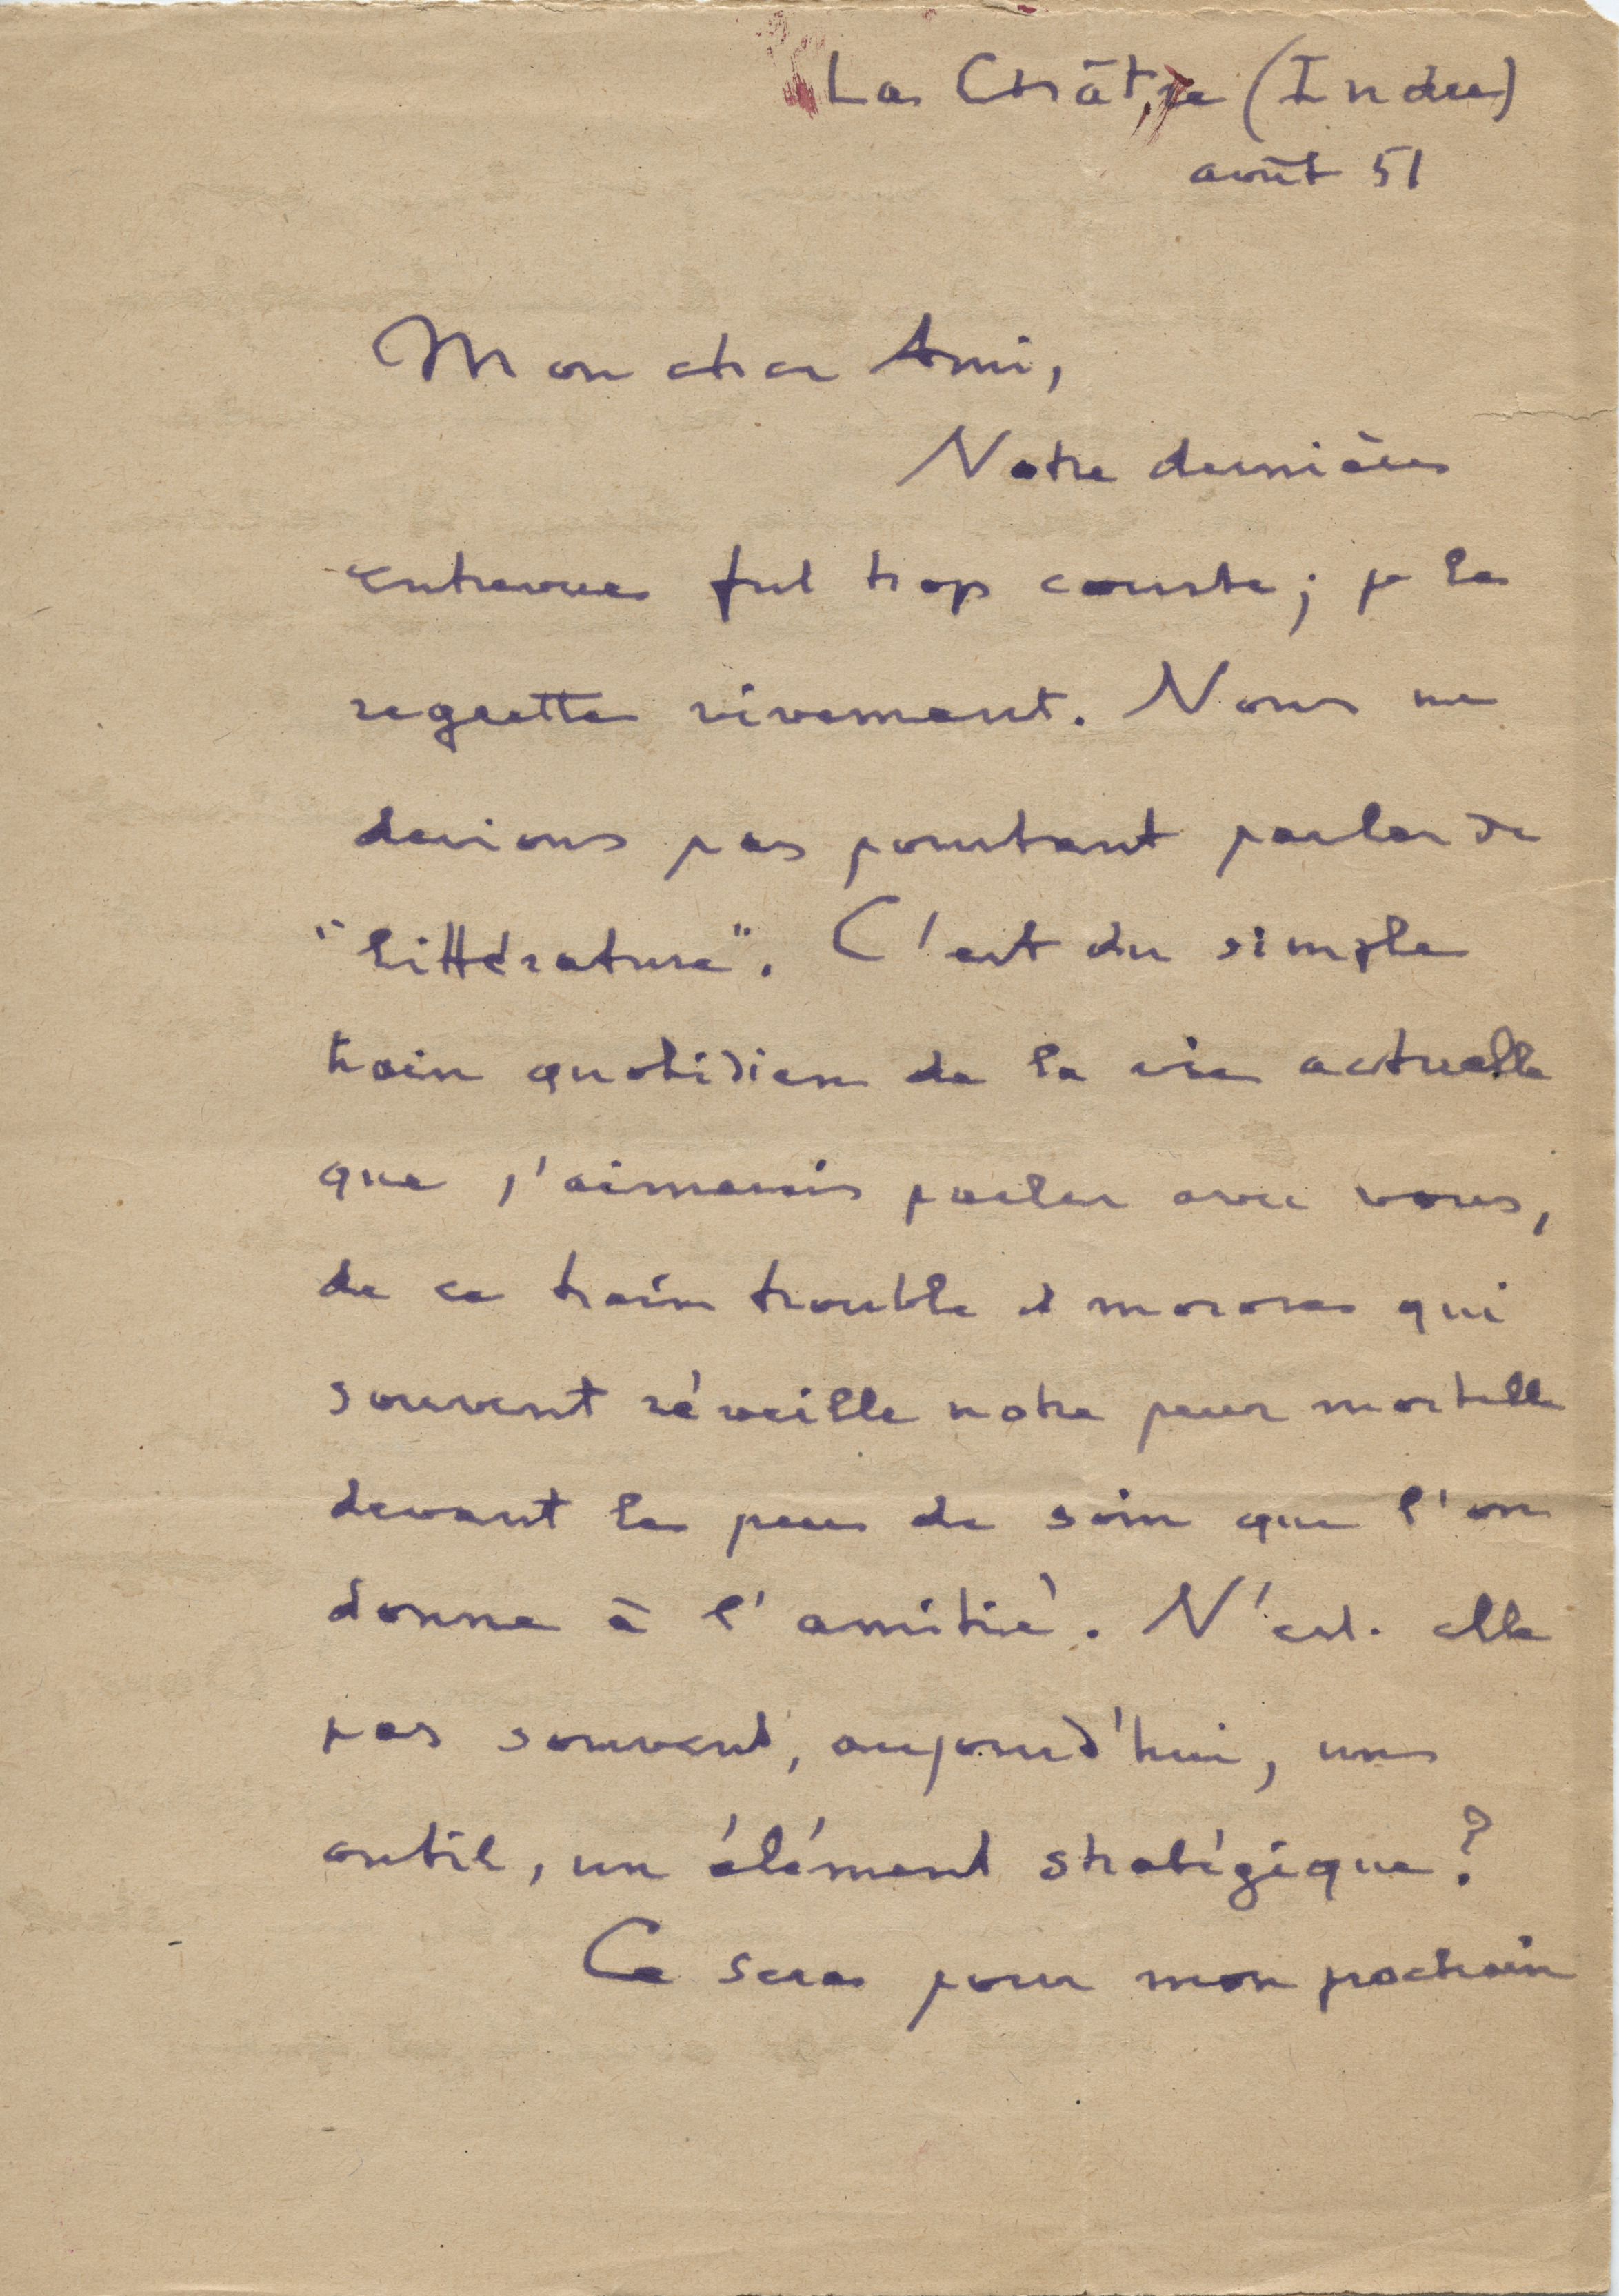 La Châtre (Indre)
août 51
Mon cher Ami,
Notre dernière
entrevue fut trop courte ; je le
regrette vivement. Nous ne
devions pas pourtant parler de
"littérature". C'est du simple
train quotidien de la vie actuelle
que j'aimerais parler avec vous,
de ce train trouble et morose qui
souvent réveille notre peur mortelle
devant le peu de soin que l'on
donne à l'amitié. N'est-elle
pas souvent, aujourd'hui, un
outil, un élément stratégique ?
Ce sera pour mon prochain